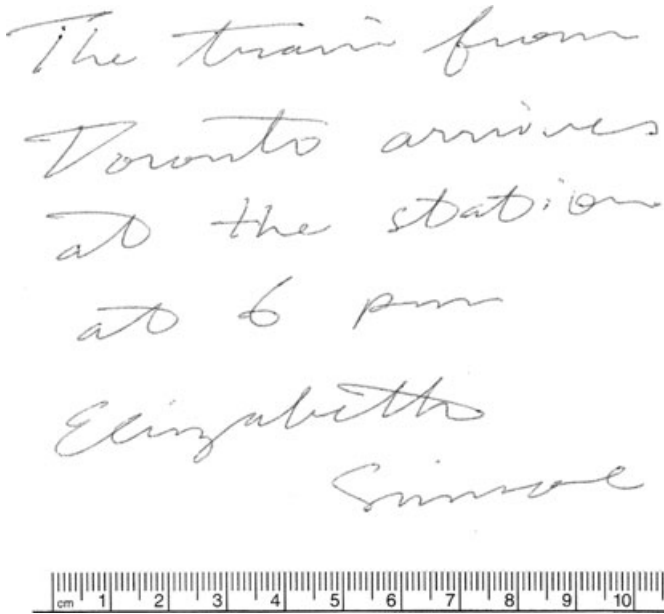 The train from
Toronto arrives
at the station
at 6 pm
Elizabeth
Simcoe
cm 1 2 3 4 5 6 7 8 9 10